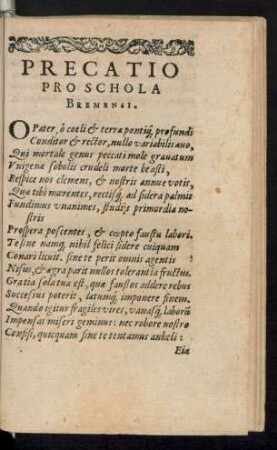 PRECATIO
PRO SCHOLA
BREMENSI.
O Pater, ô coeli & terræ pontiq́; profundi
Conditor & rector, nullo variabilis æuo,
Qui mortale genus peccati mole grauatum
Vnigenæ sobolis crudeli morte beasti,
Respice nos clemens, & nostris annue votis,
Quæ tibi mœrentes, rectisq́; ad sidera palmis
Fundimus vnanimes, studijs primordia no-
stris
Prospera poscentes, & cœpto faustu labori.
Te sine namq; nihil felici sidere cuiquam
Conari licuit. sine te perit omnis agentis
Nisus, & ægra parit nullos tolerantia fructus.
Gratia solatua est, quæ faustos addere rebus
Successus poterit, latumq́; imponere finem.
Quando igitur fragiles vires, vanasq́; laborū
Impensas miseri gemimus: nec robore nostro
Confisi, quicquam sine te tentamus anheli:
Eia